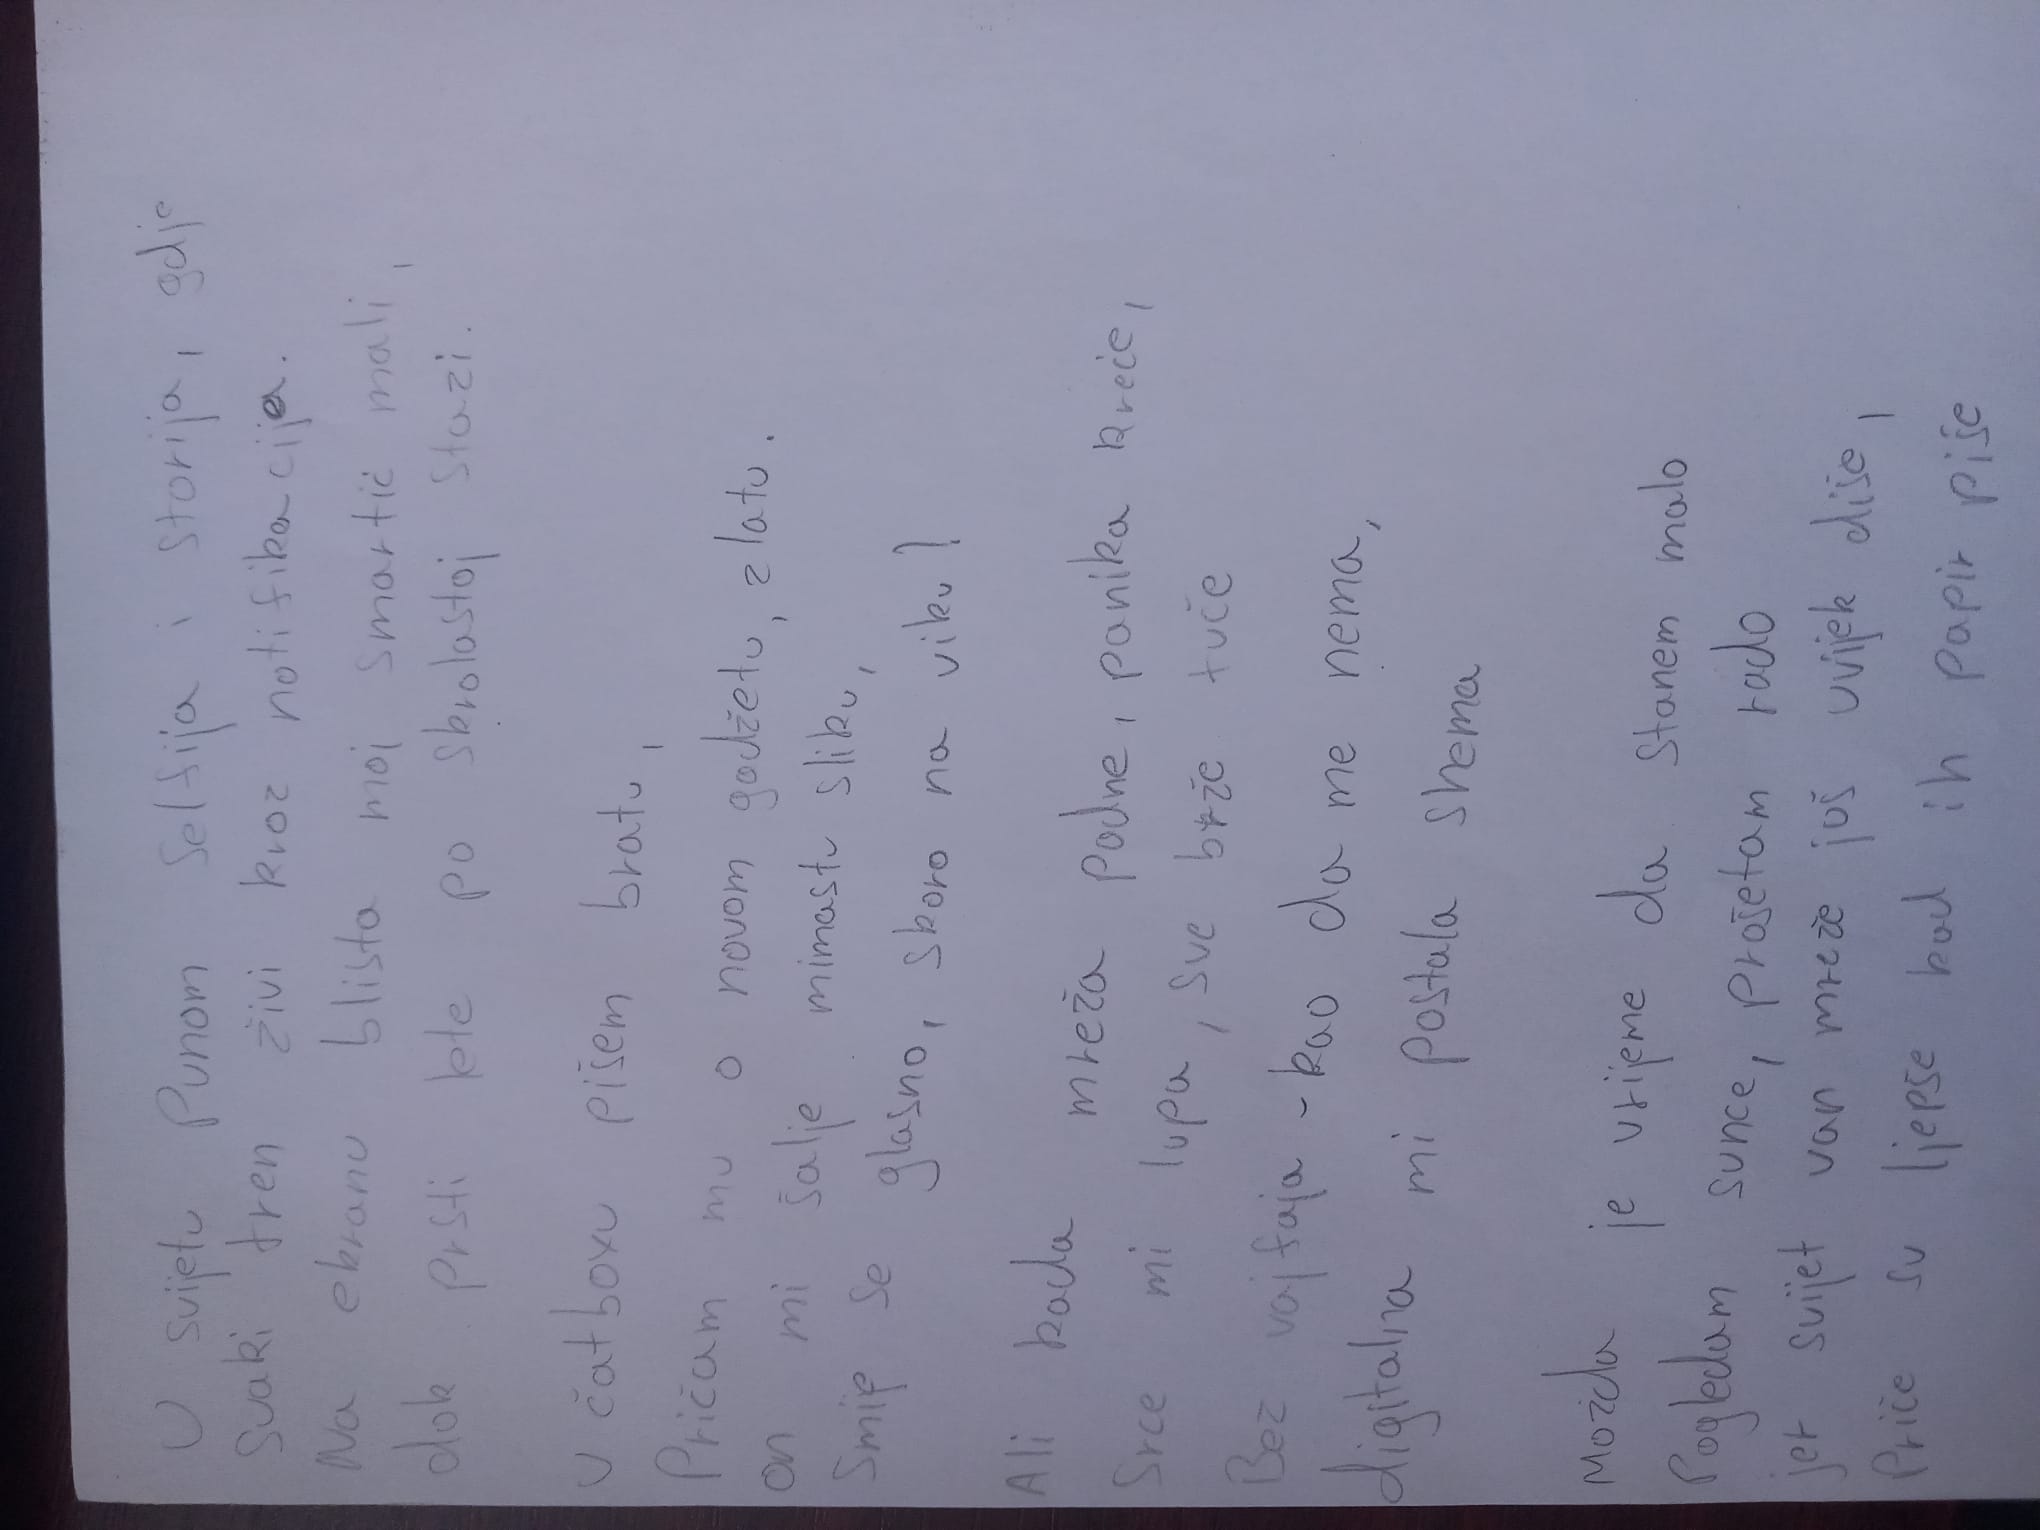 U svijetu Punom Selfija i storija, gdje
Svaki tren živi kroz notifikacija.
Na ekranu blista moj smartić mali,
dok prsti lete po skrolastoj stazi.
U čatboxu pišem bratu,
Pričam mu o novom gadžetu, zlatu.
on mi šalje mimastu sliku,
Smije se glasno, skoro na viku!
Ali kada mreža padne, panika kreće,
Srce mi lupa, sve brže tuče
Bez vajfaja - kao da me nema,
digitalna mi postala shema
Možda je vrijeme da stanem malo
Pogledam sunce, prošetam rado
jer svijet van mreže još uvijek diše,
Priče su ljepše kad ih papir piše